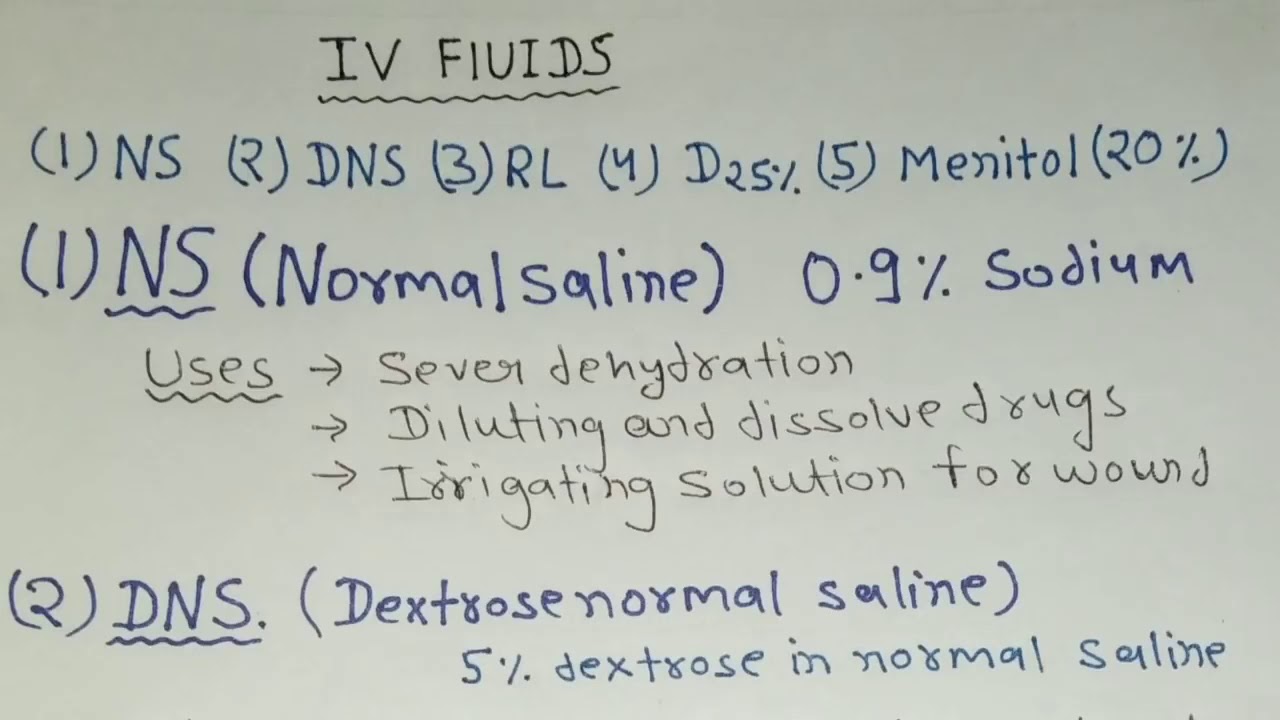 IV FlUIDS
(1) NS (2) DNS (3) RL (4) D25% (5) Menitol (20%)
(1) NS (Normal saline) 0.9% Sodium
Uses → Sever dehydration
→ Diluting and dissolve drugs
→ Irrigating solution for wound
(2) DNS. (Dextrose normal saline)
5% dextrose in normal saline